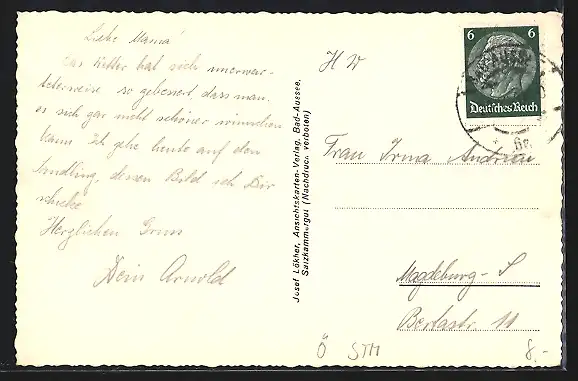 Liebe Mama!
das Wetter hat sich unerwar-
teterweise so gebessert, dass man
es sich gar nicht schöner wünschen
kann. Ich gehe heute auf den
Sandling, dessen Bild ich Dir
schicke.
Herzlichen Gruss
Dein Arnold
Josef Lökher, Ansichtskarten-Verlag, Bad-Aussee,
Salzkammergut (Nachdruck verboten)
H W
6 6
Deutsches Reich
Frau Irma Andrieu
Magdeburg-S
Bertastr. 11
Ö STM 8,-